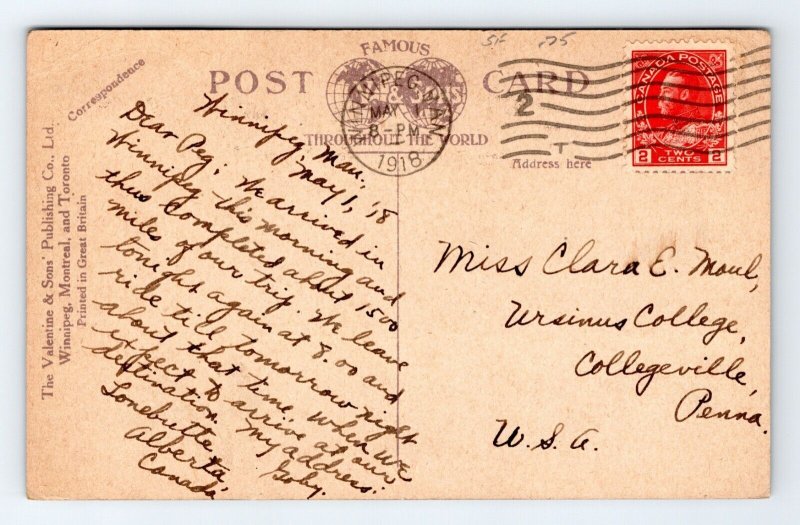 SF 7.75
FAMOUS
POST CARD
THROUGHOUT THE WORLD
WINNIPEG, MAN.
MAY 1
8 - PM
1918
2
T
Address here
CANADA POSTAGE
2 TWO CENTS 2
Correspondence
The Valentine & Sons' Publishing Co., Ltd.
Winnipeg, Montreal, and Toronto
Printed in Great Britain
Winnipeg, Man.,
May 1, '18
Dear Peg, We arrived in
Winnipeg this morning and
thus completed about 1500
miles of our trip. We leave
tonight again at 8.00 and
ride till tomorrow night
about that time, when we
expect to arrive at our
destination. My address:
Lonebutte, Goby.
Alberta,
Canada
Miss Clara E. Moul,
Ursinus College,
Collegeville,
Penna.
U.S.A.